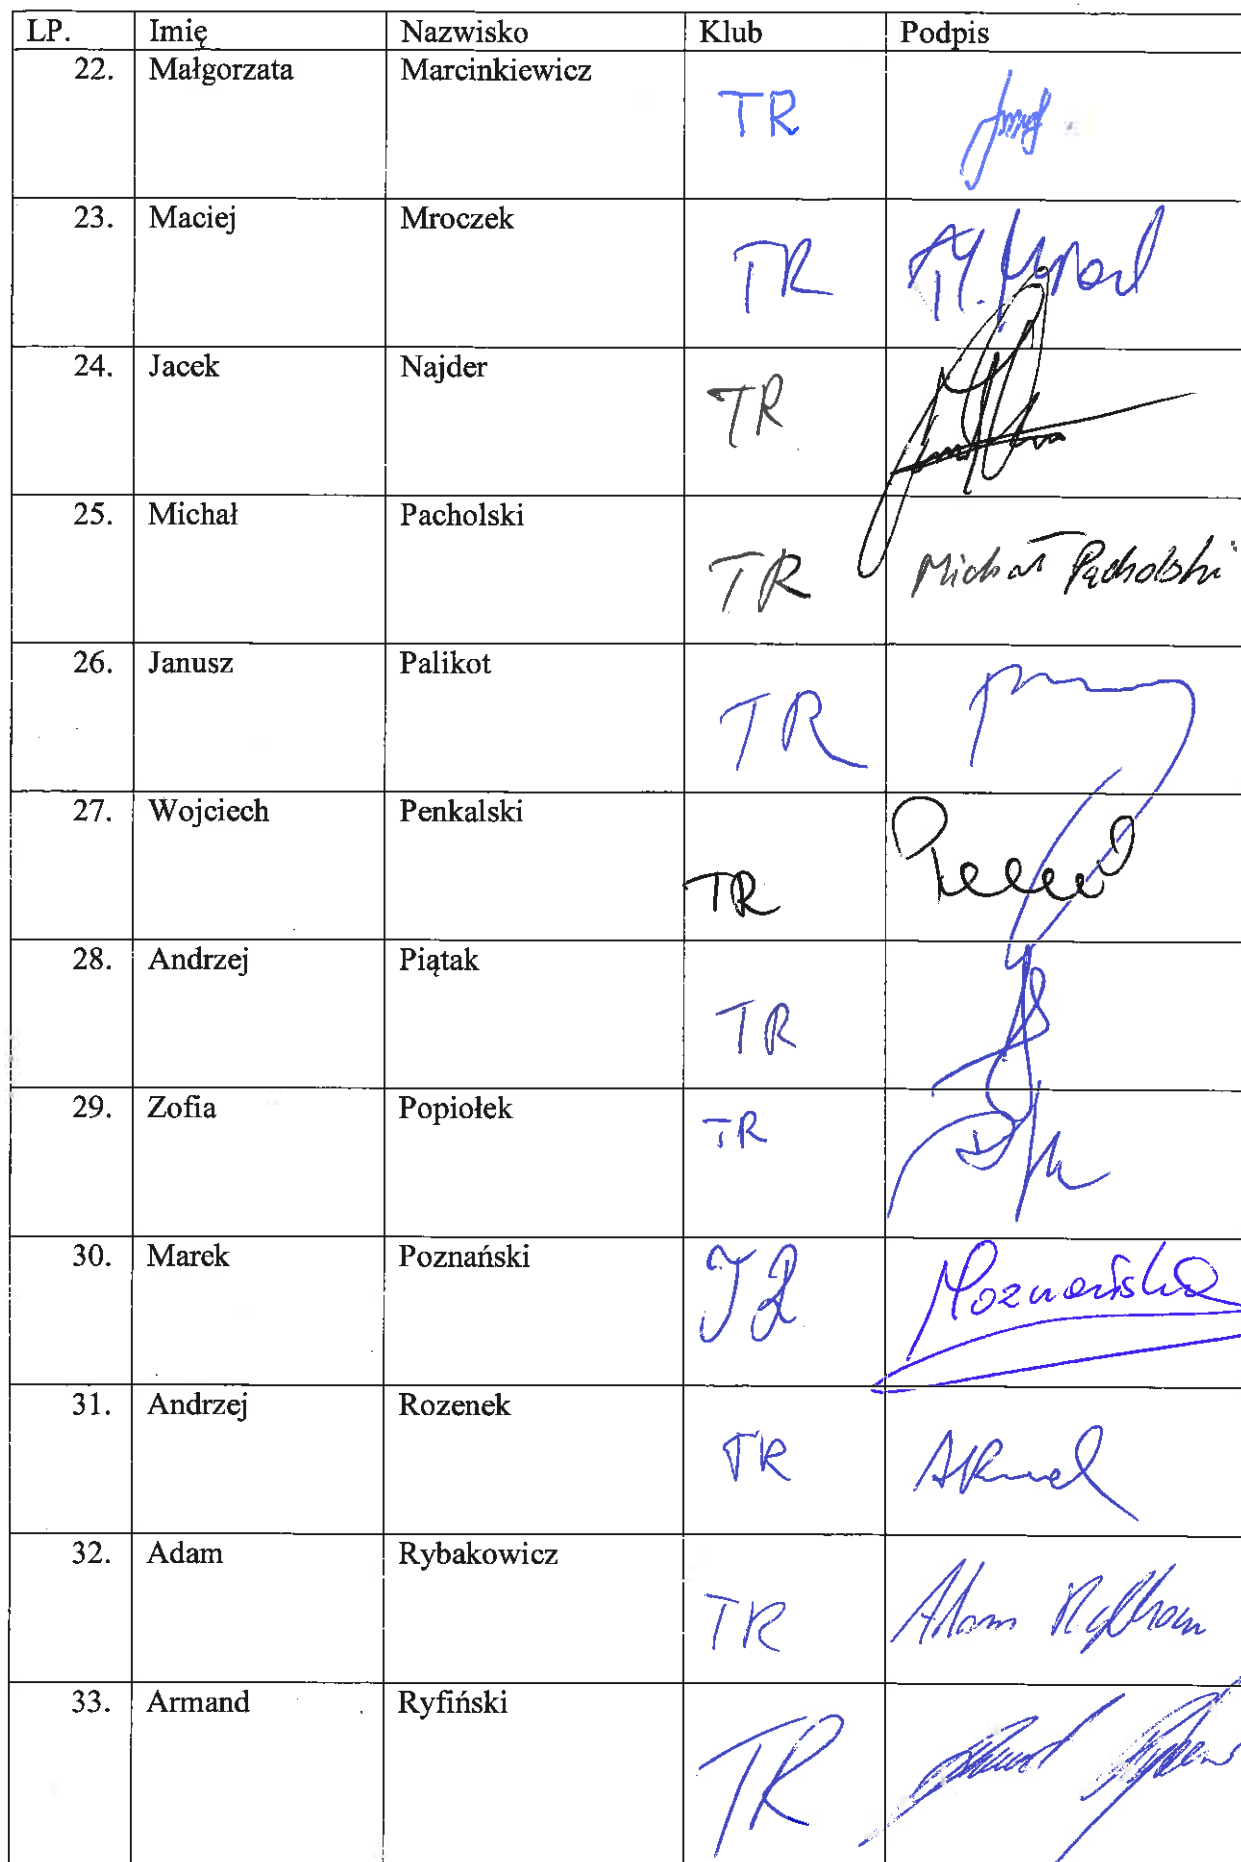 LP. Imię Nazwisko Klub Podpis
22. Małgorzata Marcinkiewicz TR
23. Maciej Mroczek TR
24. Jacek Najder TR
25. Michał Pacholski TR Michał Pacholski
26. Janusz Palikot TR
27. Wojciech Penkalski TR
28. Andrzej Piątak TR
29. Zofia Popiołek TR
30. Marek Poznański TR
31. Andrzej Rozenek TR
32. Adam Rybakowicz TR Adam
33. Armand Ryfiński TR